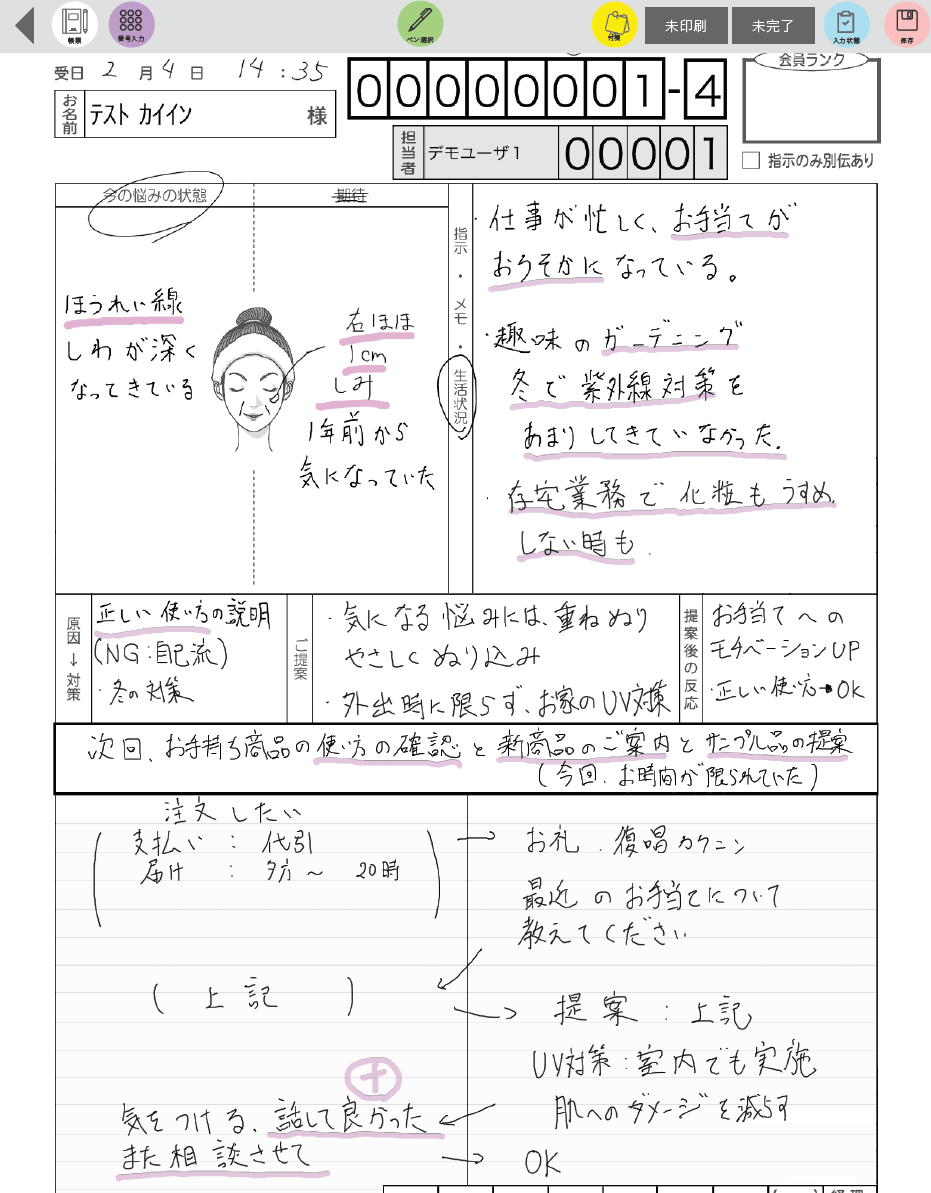 帳票
番号入力
ペン選択
付箋
未印刷
未完了
入力状態
保存
受日 2 月 4 日 14 : 35
お名前 テスト カイイン 様
00000001-4
担当者 デモユーザ1 00001
会員ランク
指示のみ別伝あり
今の悩みの状態
期待
ほうれい線
しわが深く
なってきている
右ほほ
1cm
しみ
1年前から
気になっていた
指示・メモ・生活状況
・仕事が忙しく、お手当てが
おろそかになっている。
・趣味のガーデニング
冬で紫外線対策を
あまりしてきていなかった.
・在宅業務で化粧もうすめ、
しない時も.
原因→対策
正しい使い方の説明
(NG:自己流)
・冬の対策
ご提案
・気になる悩みには、重ねぬり
やさしくぬり込み
・外出時に限らず、お家のUV対策
提案後の反応
お手当てへの
モチベーションUP
・正しい使い方→OK
次回、お手持ち商品の使い方の確認と新商品のご案内とサンプル品の提案
(今回、お時間が限られていた)
注文したい
支払い : 代引
届け : 夕方〜 20時
→ お礼、復唱カクニン
最近のお手当てについて
教えてください
(上記)
→ 提案:上記
UV対策:室内でも実施
肌へのダメージを減らす
+
気をつける、話して良かった
また相談させて
→ OK